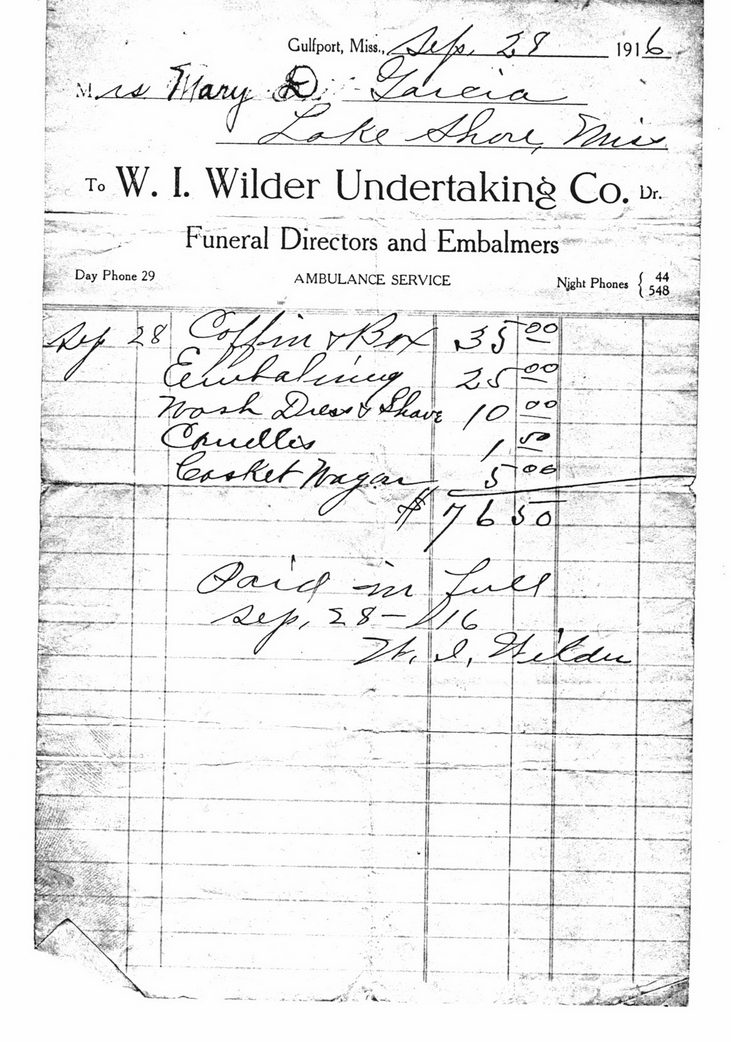 Gulfport, Miss., Sep. 28 1916
Mrs Mary D. Garcia
Lake Shore, Miss.
To W. I. Wilder Undertaking Co. Dr.
Funeral Directors and Embalmers
Day Phone 29 AMBULANCE SERVICE Night Phones { 44
548
Sep 28 Coffin & Box 35 00
Embalming 25 00
Wash Dress & Shave 10 00
Candles 1 50
Casket Wagon 5 00
$ 76 50
Paid in full
Sep, 28 - 16
W. I. Wilder